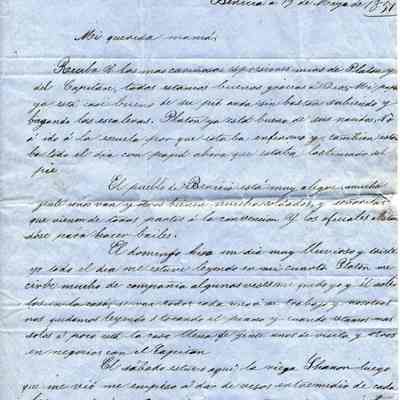 Benicia a 19 de Mayo de 1851
Mi querida mamá,
Reciba V. las mas cariñosas espresiones mias de Platon y
del Capitan, todos estamos buenos gracias a Dios, Mi papá
ya está casi bueno de su pié anda sin baston subiendo y
bajando las escaleras. Platon ya está bueno de sus
á ido á la escuela por que estaba enfermo y tambien
todo el dia con papá ahora que estaba lastimado del
pié
El pueblo de Benicia está muy alegre, mucha
gente unos van y otros bienen muchos soldados, y señoritas
que vienen de todas partes á la convencion y los oficiales
para hacer bailes.
El domingo hiso un dia muy lluvioso y triste
yo todo el dia me estuve leyendo en mi cuarto Platon me
sirbe mucho de compañia algunas veses me quedo yo y él solos
en la casa, se van todos cada uno á su trabajo y nosotros
nos quedamos leyendo ó tocando el piano y cuando estamos mas
solos á poco está la casa llena de gente unos de visita y otros
en negocios con el Capitan
El sabado estuvo aqui la vieja Shanon luego
que me vió me empesó á dar de vesos en entremedio de cada